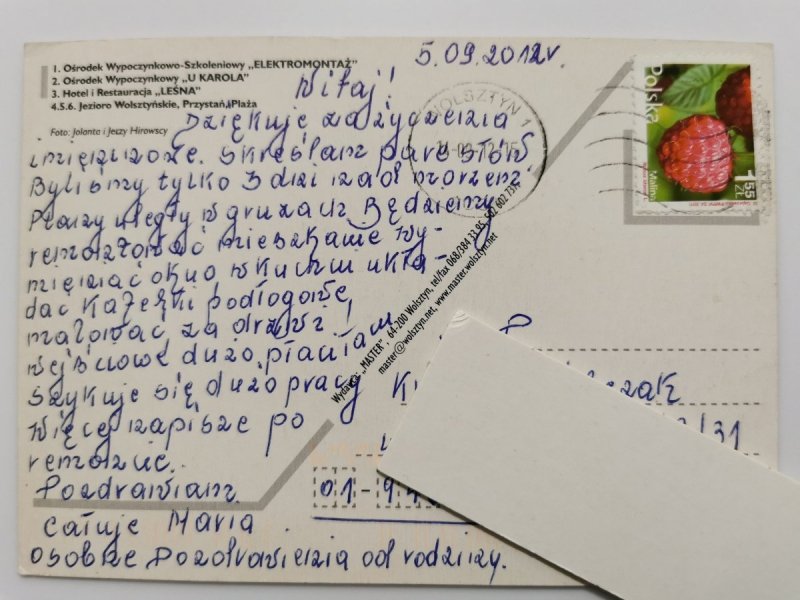 1. Ośrodek Wypoczynkowo-Szkoleniowy „ELEKTROMONTAŻ”
2. Ośrodek Wypoczynkowy „U KAROLA”
3. Hotel i Restauracja „LEŚNA”
4.5.6. Jezioro Wolsztyńskie, Przystań, Plaża
Foto: Jolanta i Jerzy Hirowscy
5.09.2012r.
Witaj!
Dziękuję za życzenia
imieninowe. Skreślam parę słów
Byliśmy tylko 3 dni nad morzem
Plany uległy w gruzach. Będziemy
remontować mieszkanie wy-
mieniać okno w kuchni ukła-
dać kafelki podłogowe,
malować za drzwi!
wejściowe dużo płaciłam
szykuje się dużo pracy
więcej napiszę po
remoncie.
Pozdrawiam
całuję Maria.
osobne pozdrowienia od rodziny.
WOLSZTYN 1
Polska
1,55
ZŁ
Malina
Wydawca: „MASTER”, 64-200 Wolsztyn, tel/fax 068/384 33 95, 502 602 733
master@wolsztyn.net, www.master.wolsztyn.net
/31
01-9